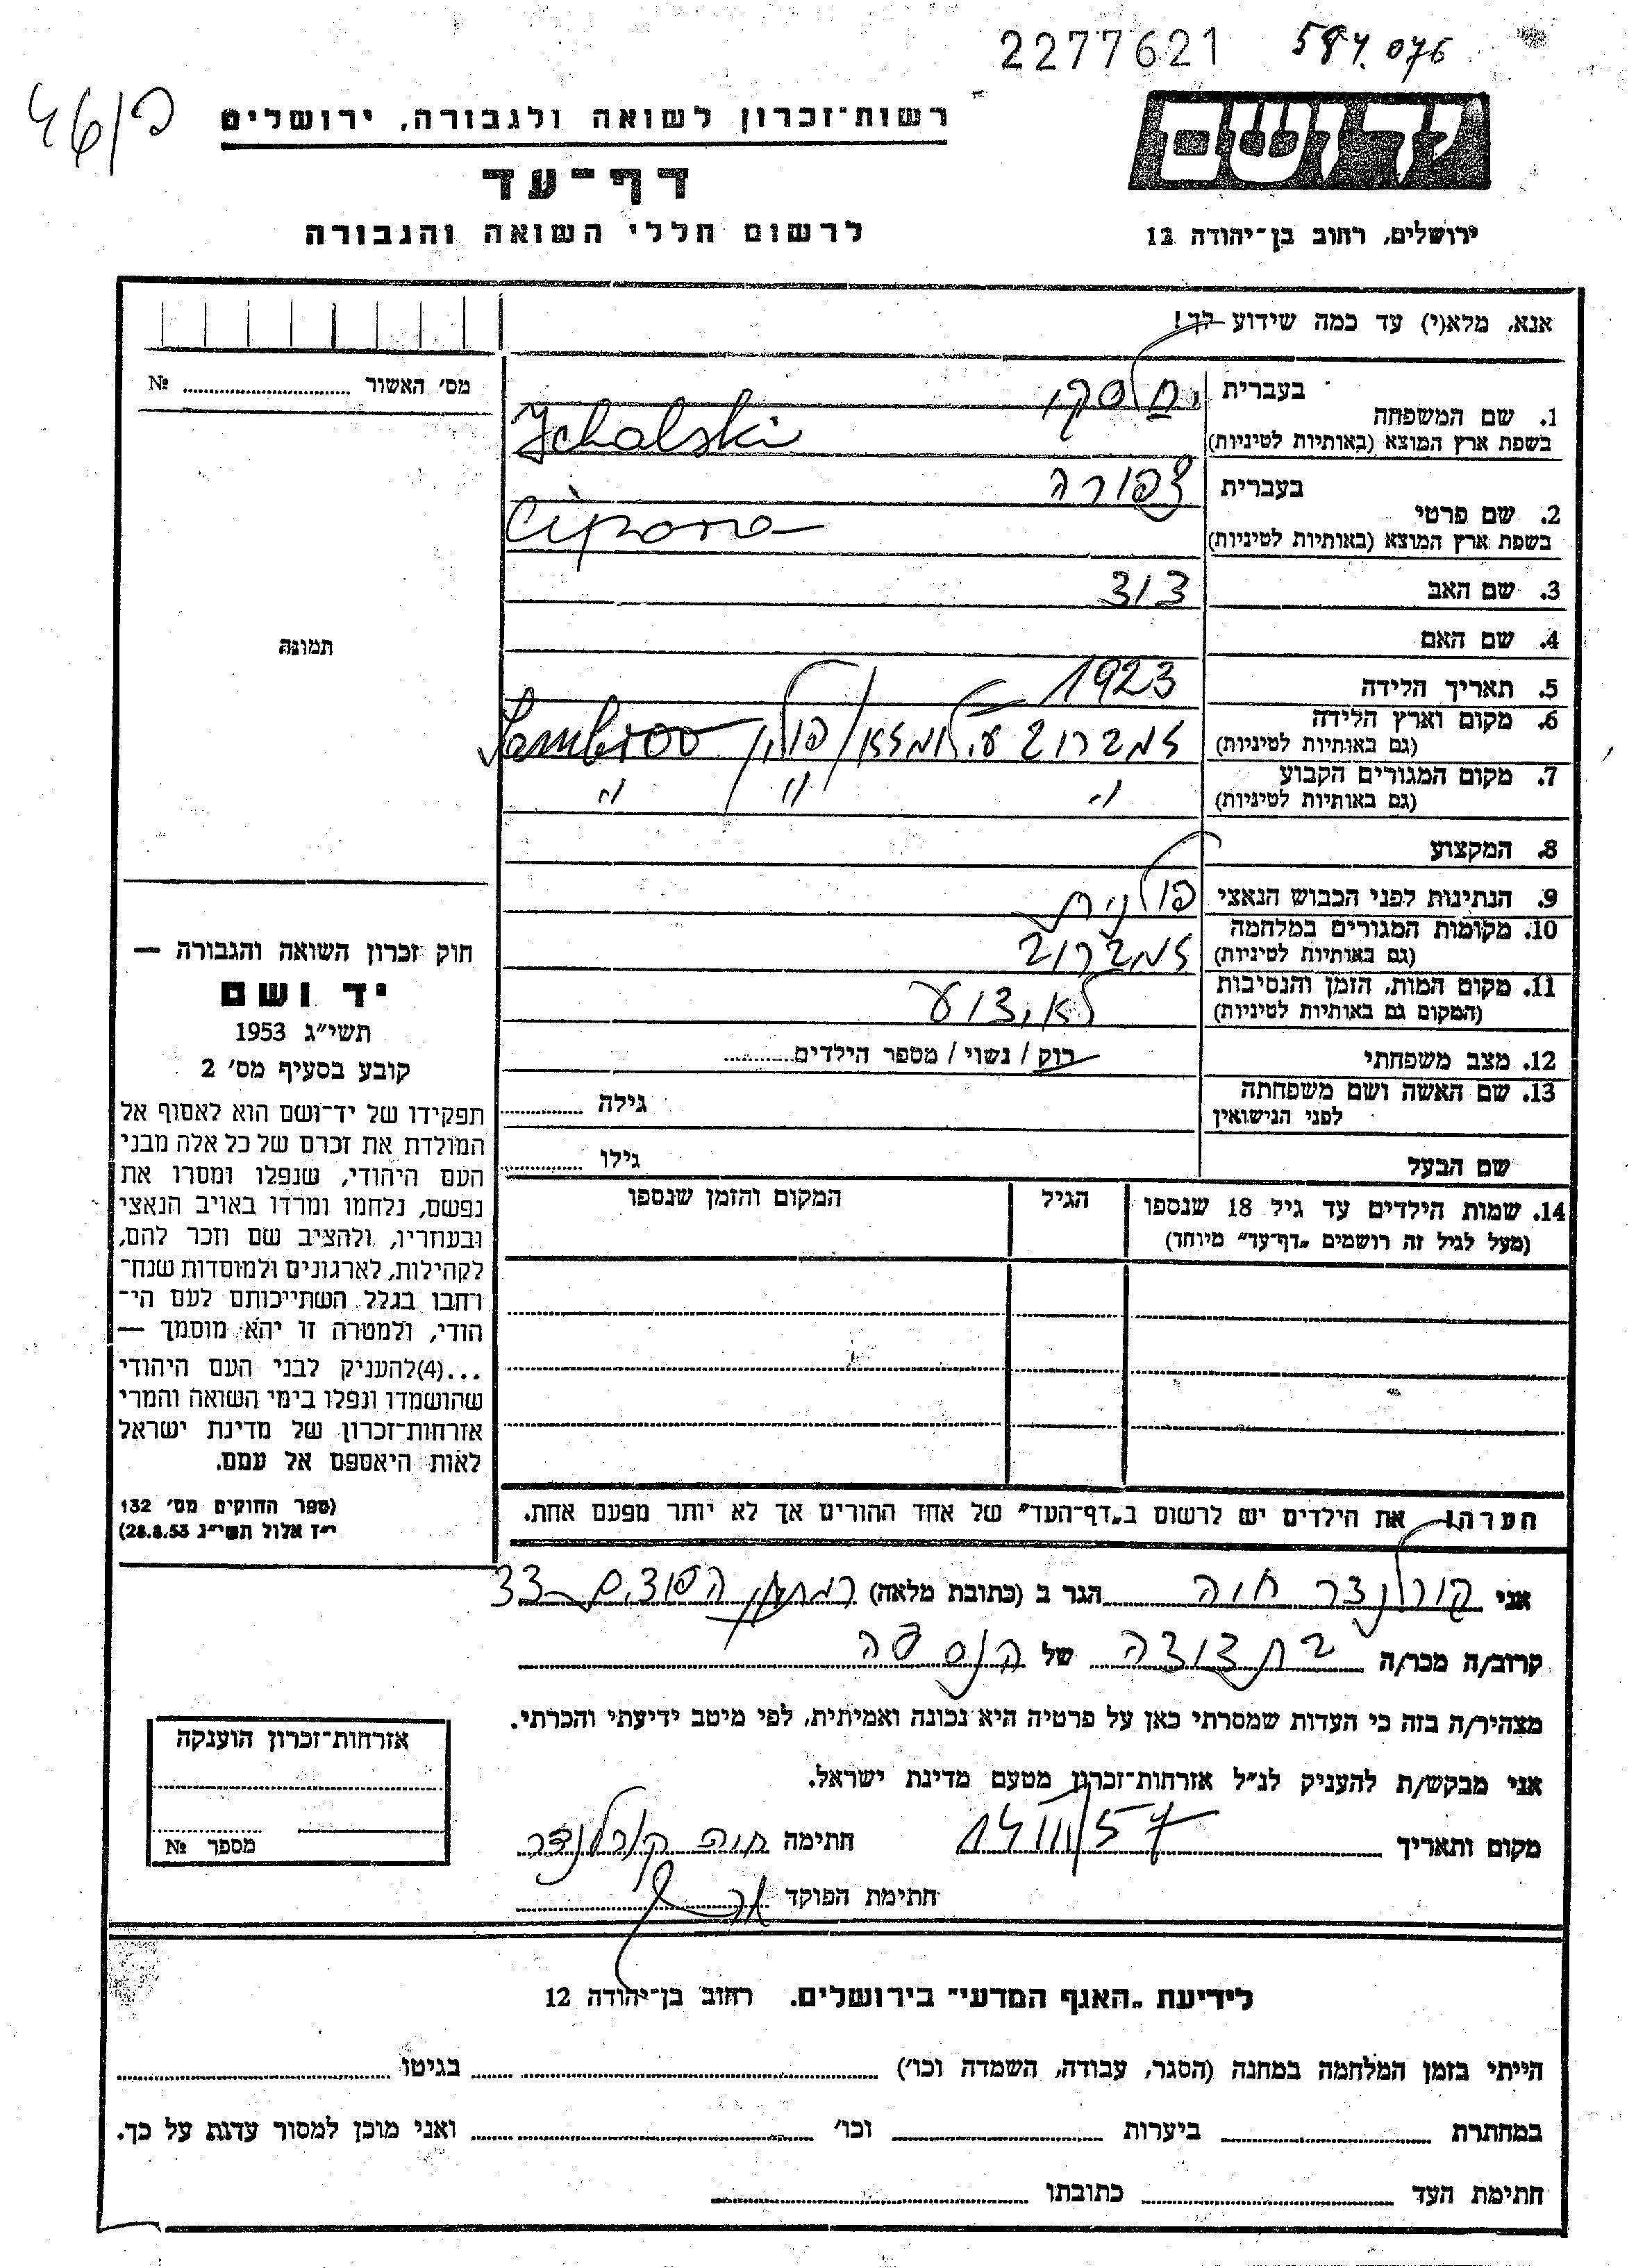 2277621 584.076
רשות־זכרון לשואה ולגבורה, ירושלים
דף־עד
לרשום חללי השואה והגבורה
ירושלים, רחוב בן־יהודה 12
אנא, מלא(י) עד כמה שידוע לך!
מס׳ האשור № 
בעברית יחלסקי
1. שם המשפחה
בשפת ארץ המוצא (באותיות לטיניות) Jchalski
בעברית צפורה
2. שם פרטי
בשפת ארץ המוצא (באותיות לטיניות) Cipora
3. שם האב דוד
4. שם האם
תמונה
5. תאריך הלידה 1923
6. מקום וארץ הלידה
(גם באותיות לטיניות) זמברוב ע״י לומזא/פולין/ Zambrow
7. מקום המגורים הקבוע
(גם באותיות לטיניות) " " "
8. המקצוע
9. הנתינות לפני הכבוש הנאצי פולנית
10. מקומות המגורים במלחמה
(גם באותיות לטיניות) זמברוב
11. מקום המות, הזמן והנסיבות
(המקום גם באותיות לטיניות) לא ידוע
12. מצב משפחתי רוק / נשוי / מספר הילדים
13. שם האשה ושם משפחתה
לפני הנישואין גילה
שם הבעל גילו
14. שמות הילדים עד גיל 18 שנספו הגיל המקום והזמן שנספו
(מעל לגיל זה רושמים „דף־עד״ מיוחד)
חוק זכרון השואה והגבורה —
יד ושם
תשי״ג 1953
קובע בסעיף מס׳ 2
תפקידו של יד־ושם הוא לאסוף אל
המולדת את זכרם של כל אלה מבני
העם היהודי, שנפלו ומסרו את
נפשם, נלחמו ומרדו באויב הנאצי
ובעוזריו, ולהציב שם וזכר להם,
לקהילות, לארגונים ולמוסדות שנח־
רחבו בגלל השתייכותם לעם הי־
הודי, ולמטרה זו יהא מוסמך —
...(4)להעניק לבני העם היהודי
שהושמדו ונפלו בימי השואה והמרי
אזרחות־זכרון של מדינת ישראל
לאות היאספם אל עמם.
(ספר החוקים מס׳ 132
י״ז אלול תשי״ג 28.8.53)
הערה: את הילדים יש לרשום ב„דף־העד״ של אחד ההורים אך לא יותר מפעם אחת.
אני קורלנדר חוה הגר ב (כתובת מלאה) 33
קרוב/ה מכר/ה בת דודה של הנספה
מצהיר/ה בזה כי העדות שמסרתי כאן על פרטיה היא נכונה ואמיתית, לפי מיטב ידיעתי והכרתי.
אני מבקש/ת להעניק לנ״ל אזרחות־זכרון מטעם מדינת ישראל.
מקום ותאריך חתימה חוה קורלנדר
חתימת הפוקד
אזרחות־זכרון הוענקה
מספר №
לידיעת „האגף המדעי״ בירושלים. רחוב בן־יהודה 12
הייתי בזמן המלחמה במחנה (הסגר, עבודה, השמדה וכו׳) בגיטו
במחתרת ביערות וכו׳ ואני מוכן למסור עדות על כך.
חתימת העד כתובתו